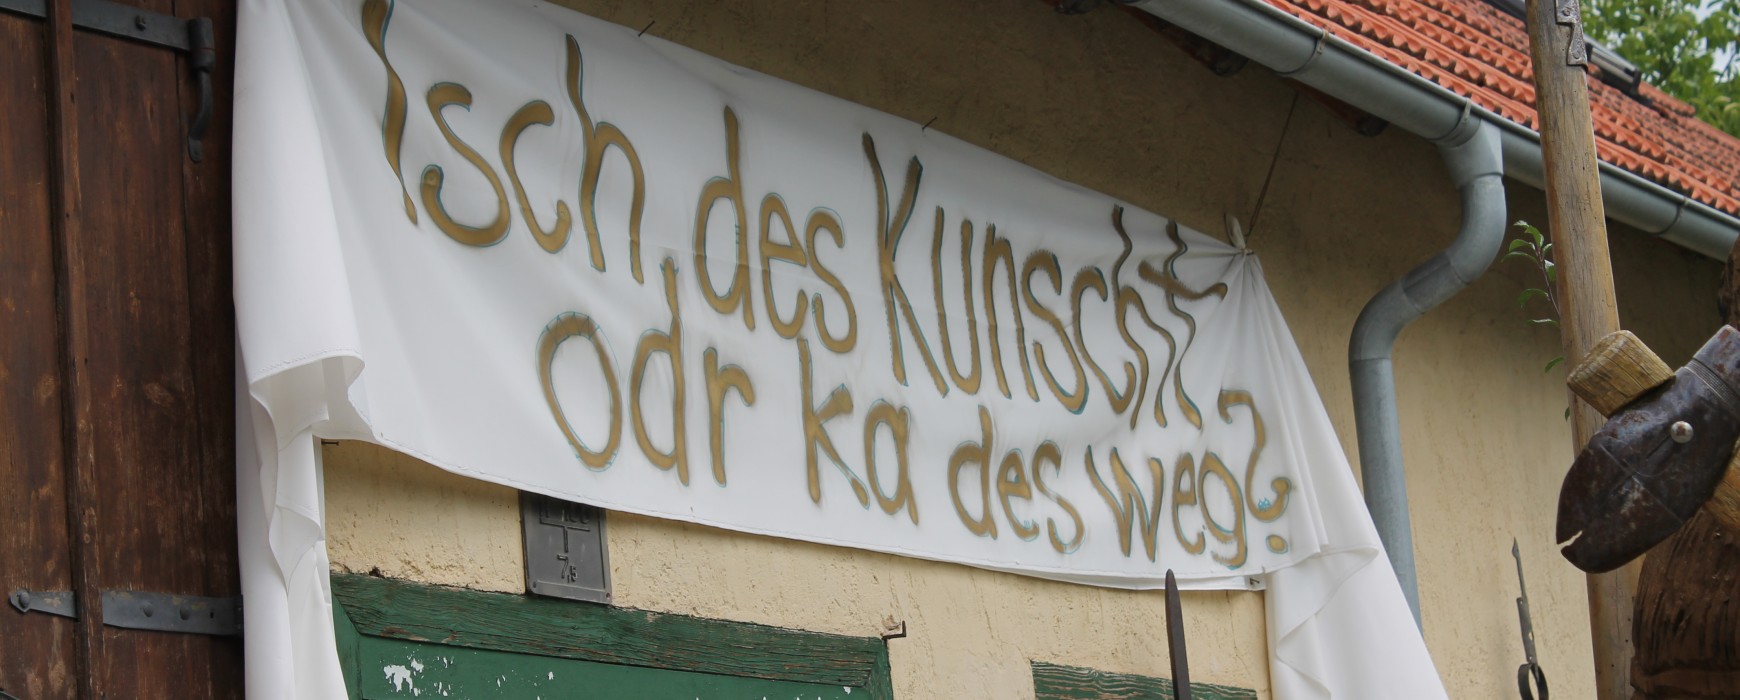 Isch des Kunscht
odr ka des weg?
7,5
7